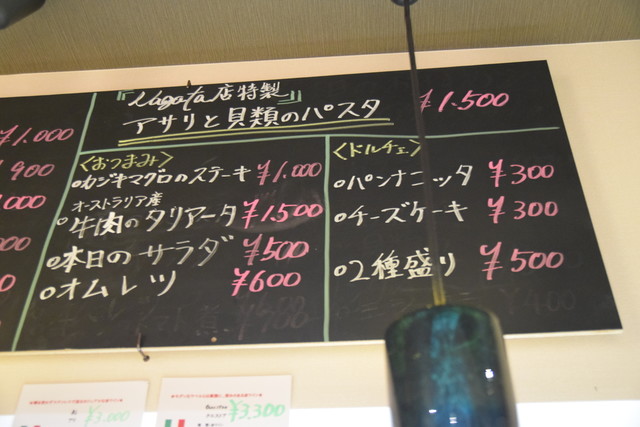 『Nagata店特製』
アサリと貝類のパスタ ¥1.500
¥1.000
900
000
000
<おつまみ>
○カジキマグロのステーキ ¥1.000
オーストラリア産
○牛肉のタリアータ ¥1.500
○本日のサラダ ¥500
○オムレツ ¥600
<ドルチェ>
○パンナコッタ ¥300
○チーズケーキ ¥300
○2種盛り ¥500
¥3.000
¥3.300